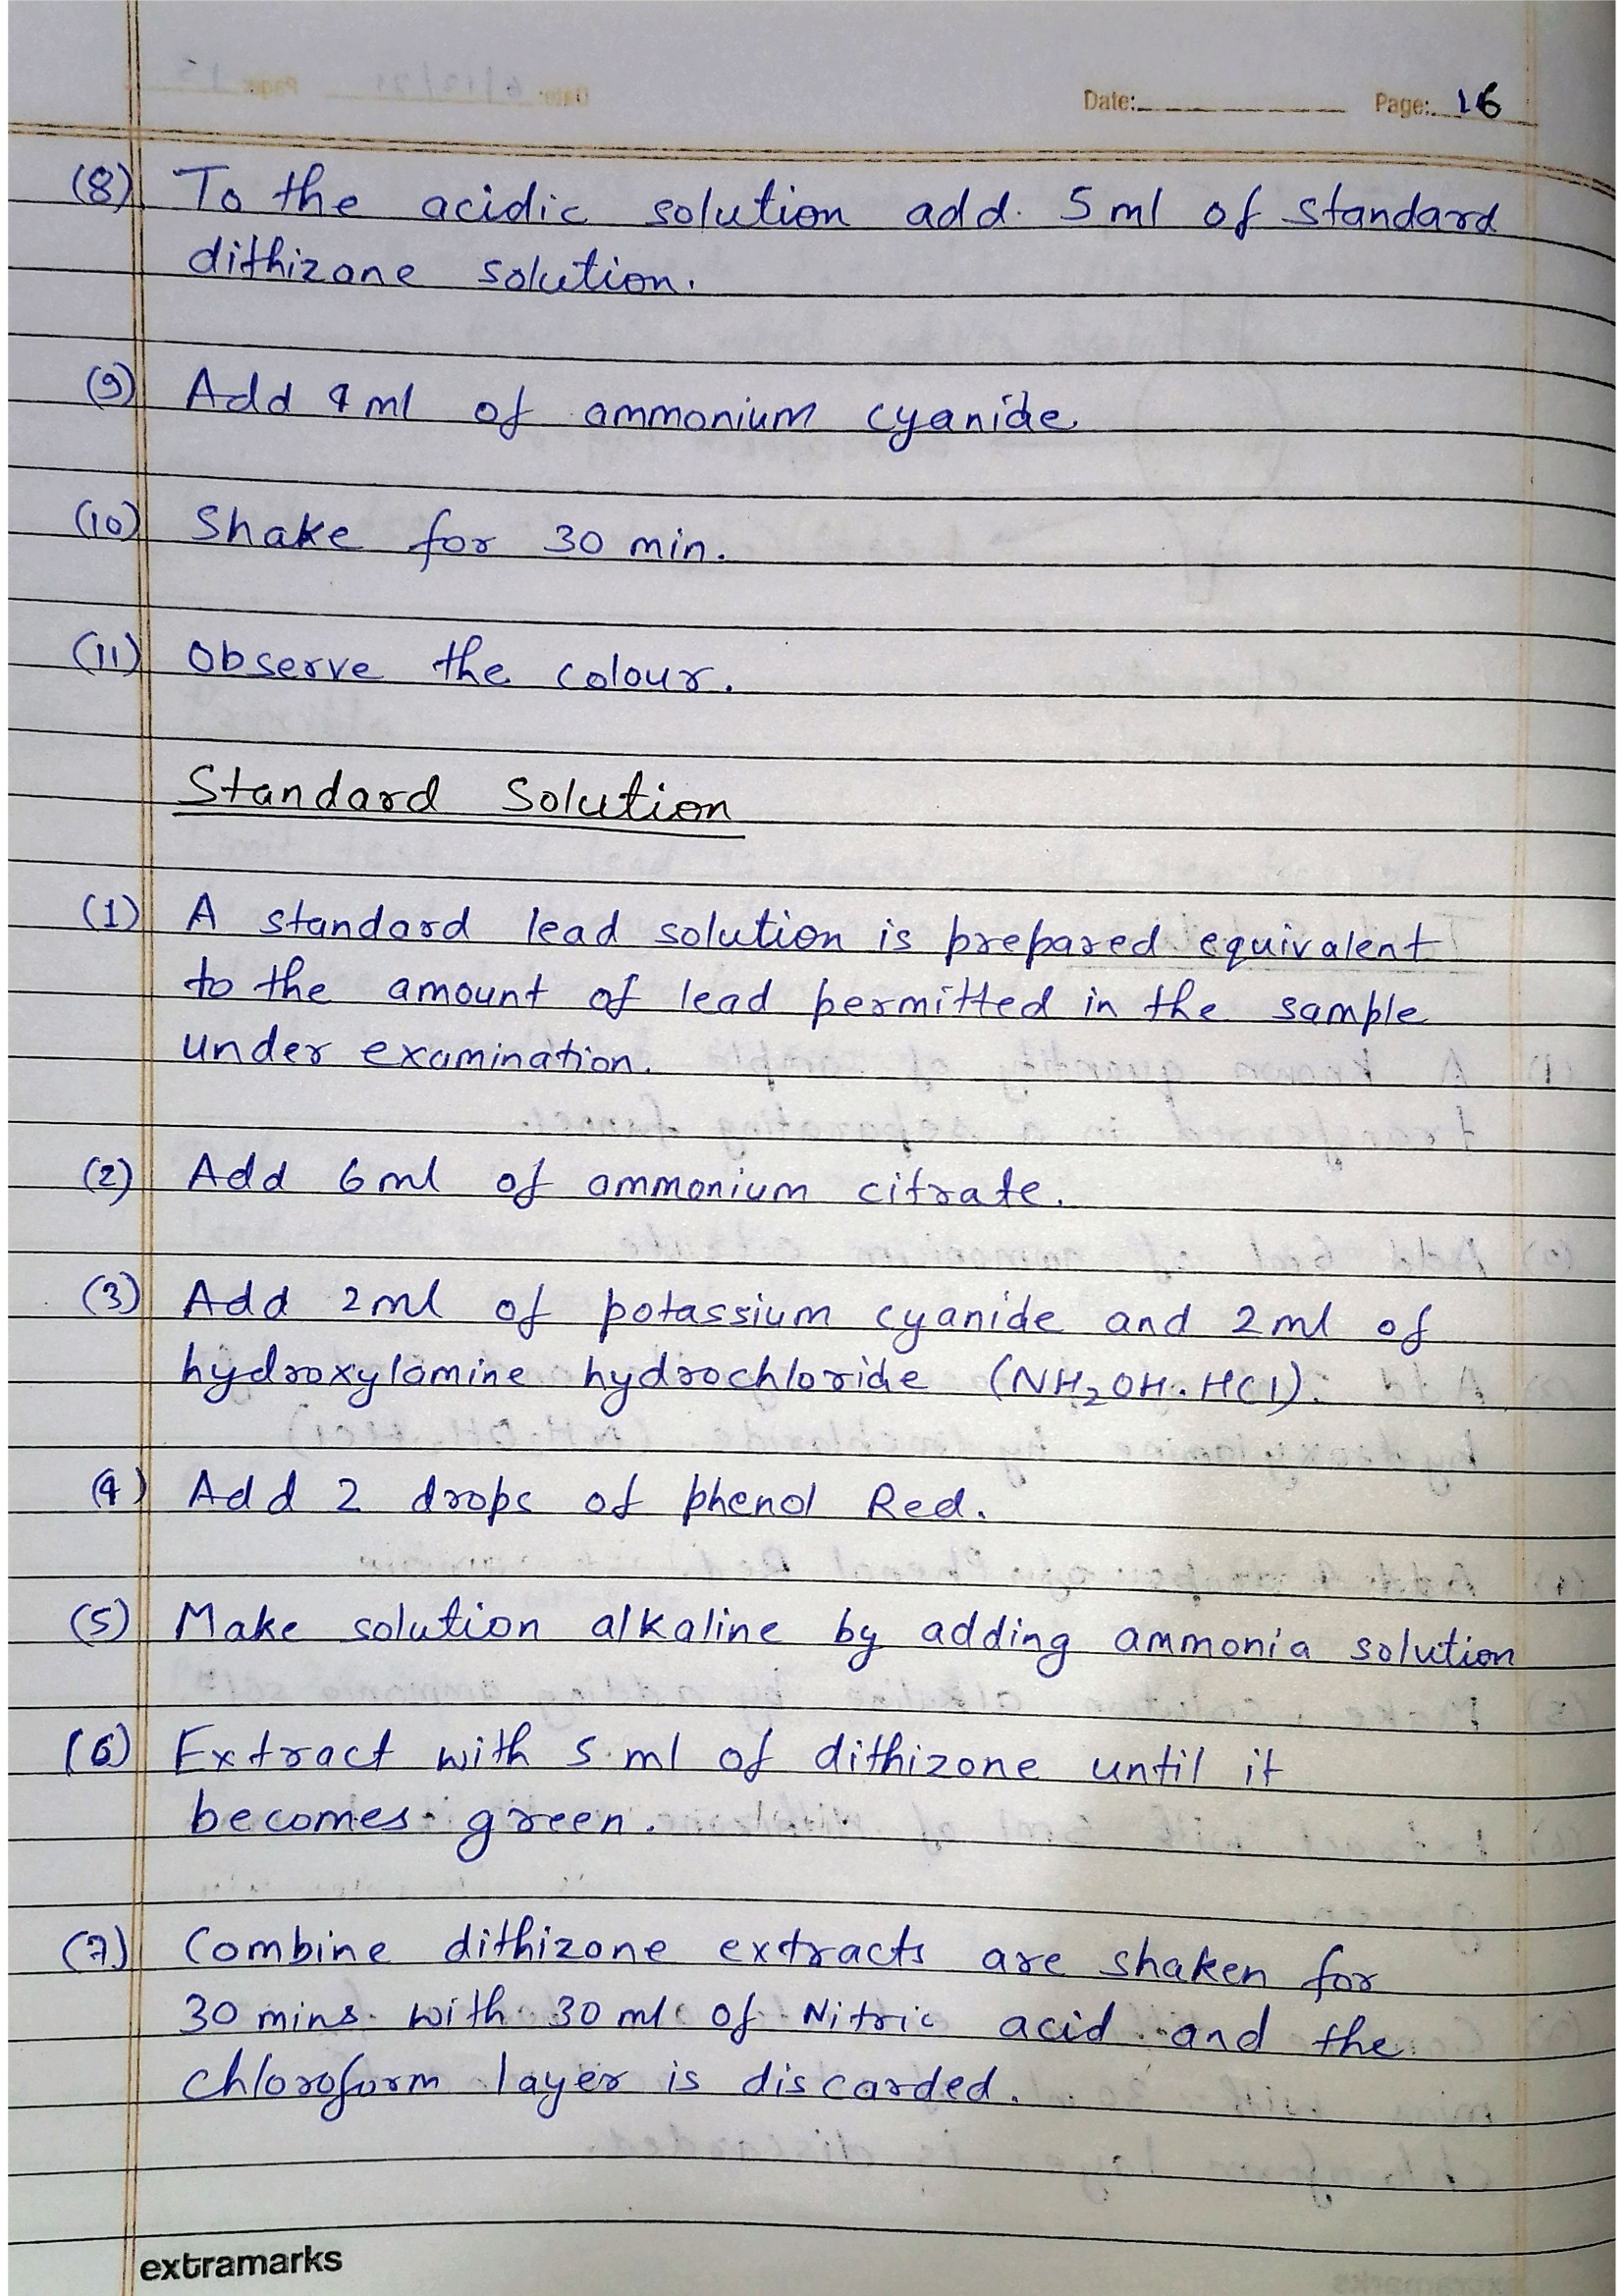 Date: Page: 16
(8) To the acidic solution add 5 ml of standard
dithizone solution.
(9) Add 4 ml of ammonium cyanide
(10) Shake for 30 min.
(11) Observe the colour.
Standard Solution
(1) A standard lead solution is prepared equivalent
to the amount of lead permitted in the sample
under examination.
(2) Add 6 ml of ammonium citrate.
(3) Add 2 ml of potassium cyanide and 2 ml of
hydroxylamine hydrochloride (NH₂OH.HCl).
(4) Add 2 drops of phenol Red.
(5) Make solution alkaline by adding ammonia solution
(6) Extract with 5 ml of dithizone until it
becomes green.
(7) Combine dithizone extracts are shaken for
30 mins. with 30 ml of Nitric acid and the
chloroform layer is discarded.
extramarks